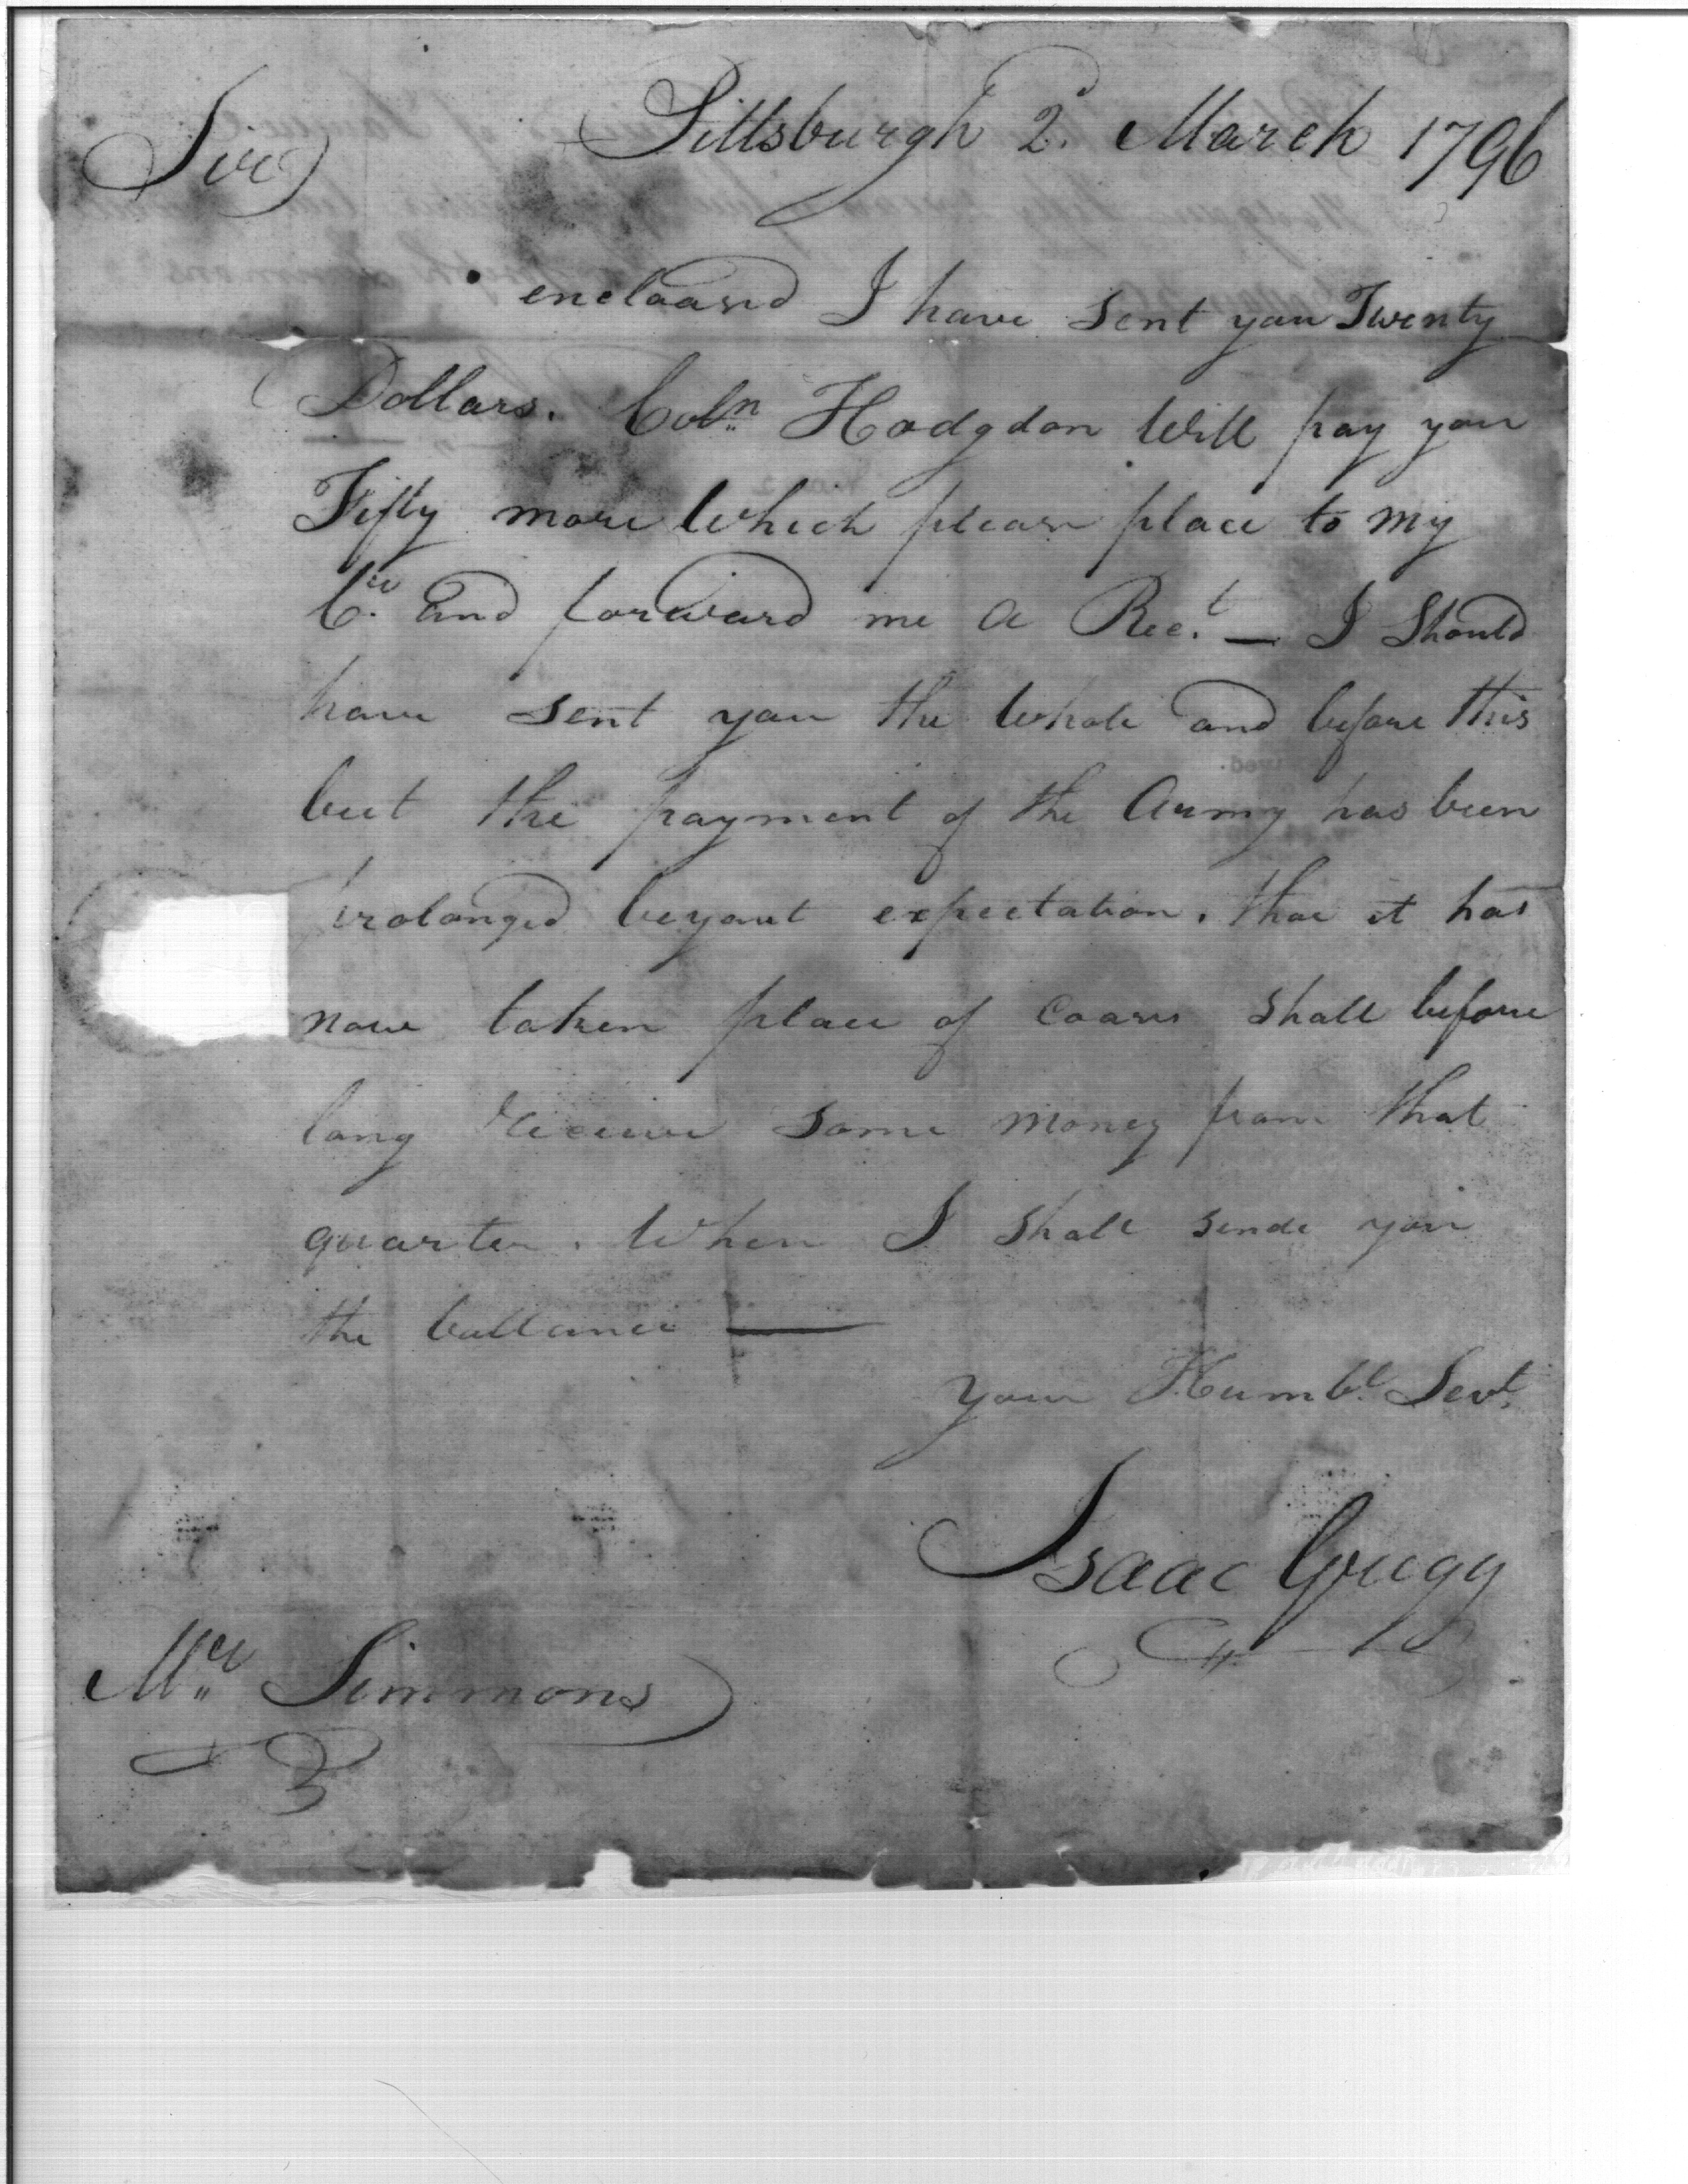 Pittsburgh 2d. March 1796
Sir
encloased I have sent you Twenty
Dollars. Coln Hodgdon Will pay you
Fifty more Which please place to my
Cr. and forward me a Rect. — I Should
have sent you the Whole and before this
but the payment of the Army has been
prolonged beyont expectation. thoe it has
now taken place of coars shall before
long receive some money from that
quarter. When I shall sende you
the ballance —
your Humbl. Sevt.
Isaac Gregg
Mr. Simmons